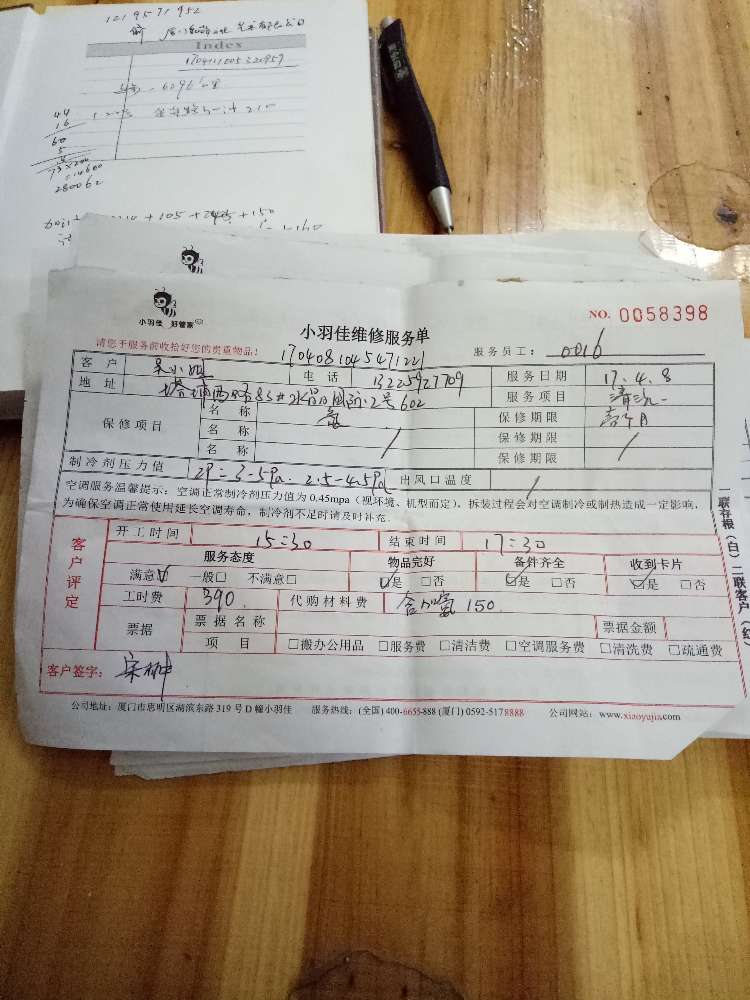 1219571952
Index
17041110053 20959
44
16
60
5
73×200
=14600
280062
+105+
+150
小羽佳 好管家
小羽佳维修服务单
NO. 0058398
请您于服务前收拾好您的贵重物品!
1704081045471221
服务员工: 0016
客户 吴小姐 电话 13225927709 服务日期 17.4.8
地址 85# 2号602 服务项目 清洗
保修项目 名称 氟 保修期限
名称 / 保修期限 /
名称 保修期限
制冷剂压力值 2P=3-5Pa. 2.5-4.5Pa 出风口温度 /
空调服务温馨提示:空调正常制冷剂压力值为0.45mpa(视环境、机型而定),拆装过程会对空调制冷或制热造成一定影响,
为确保空调正常使用延长空调寿命,制冷剂不足时请及时补充。
客户评定
开工时间 15:30 结束时间 17:30
服务态度 物品完好 备件齐全 收到卡片
满意☑ 一般□ 不满意□ ☑是 □否 ☑是 □否 ☑是 □否
工时费 390. 代购材料费 含加氟150.
票据 票据名称 票据金额
项目 □搬办公用品 □服务费 □清洁费 □空调服务费 □清洗费 □疏通费
客户签字:
公司地址:厦门市思明区湖滨东路319号D幢小羽佳 服务热线:(全国)400-6655-888 (厦门)0592-5178888 公司网站:www.xiaoyujia.com
一联存根(白)二联客户(红)